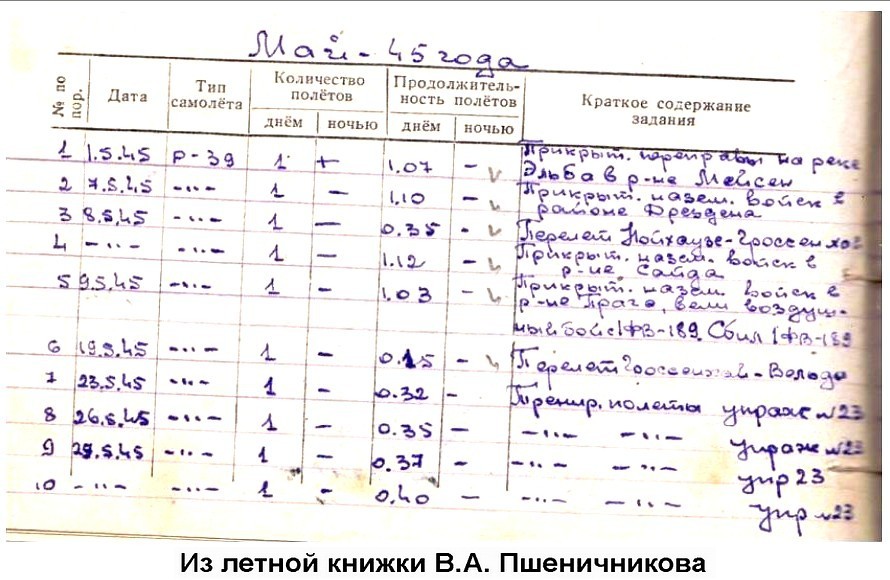 Май - 45 года
№ по пор. Дата Тип самолёта Количество полётов Продолжитель-ность полётов Краткое содержание задания
днём ночью днём ночью
1 1.5.45 Р-39 1 + 1.07 - Прикрыт. переправы на реке
Эльба в р-не Мейсен
2 7.5.45 -"- 1 - 1.10 - Прикрыт. назем. войск в
районе Дрездена
3 8.5.45 -"- 1 - 0.35 - Перелет Нойхаузе-Гроссенхай
4 -"- -"- 1 - 1.12 - Прикрыт. назем. войск в
р-не Сайда
5 9.5.45 -"- 1 - 1.03 - Прикрыт. назем. войск в
р-не Прага, вели воздуш-
ный бой с 1 ФВ-189. Сбил 1 ФВ-189
6 19.5.45 -"- 1 - 0.15 - Перелет Гроссенхай-
7 23.5.45 -"- 1 - 0.32 - Тренир. полеты упраж №23
8 26.5.45 -"- 1 - 0.35 - -"- -"- упраж №23
9 29.5.45 -"- 1 - 0.37 - -"- -"- упр 23
10 -"- -"- 1 - 0.40 - -"- -"- упр №23
Из летной книжки В.А. Пшеничникова